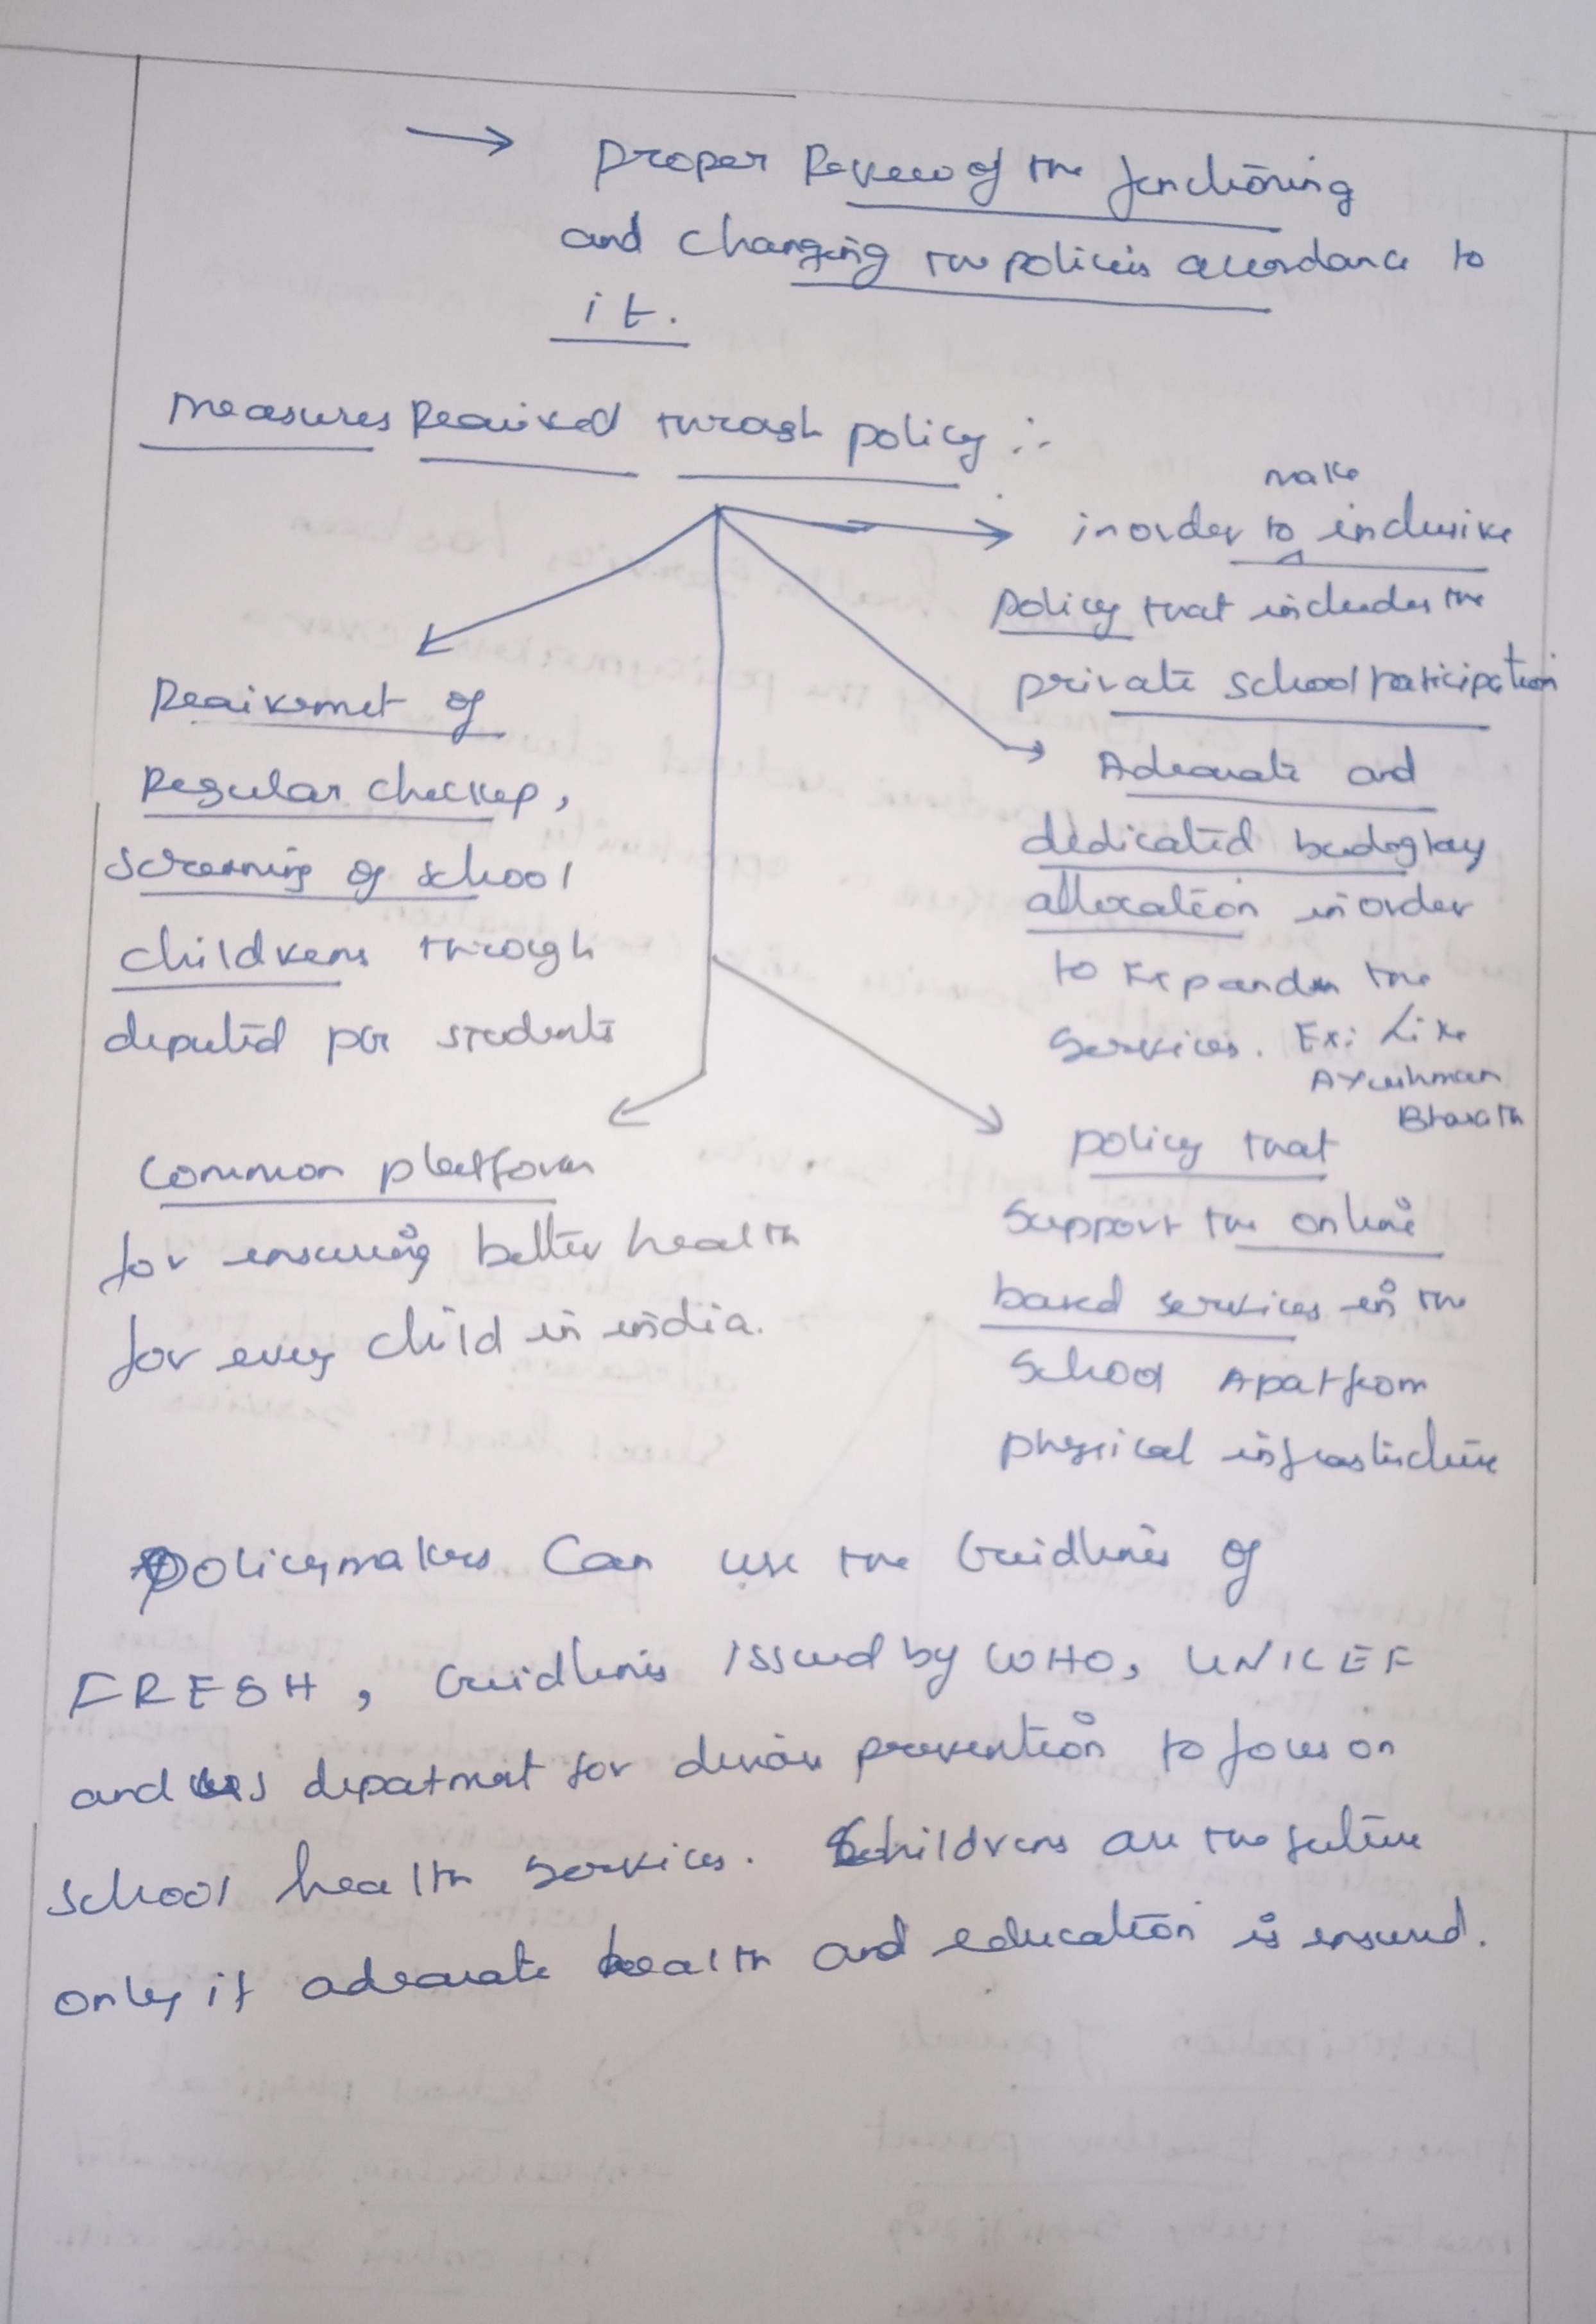 → proper Review of the functioning
and changing the policies accordance to
it.
Measures Required through policy :-
make
inorder to inclusive
policy that includes the
private school participation
Adequate and
dedicated
allocation inorder
to Expand the
Services. Ex: Like
Ayushman
Bharath
policy that
Support the online
based services in the
School Apat from
physical infrastructure
of
Regular checkup,
screening of school
childrens through
deputed per students
Common platform
for ensuring better health
for every child in india.
policymakers can use the Guidlines of
FRESH, Guidlines issued by WHO, UNICEF
and for prevention to focus on
school health services. Childrens are the future
only if adequate health and education is ensured.